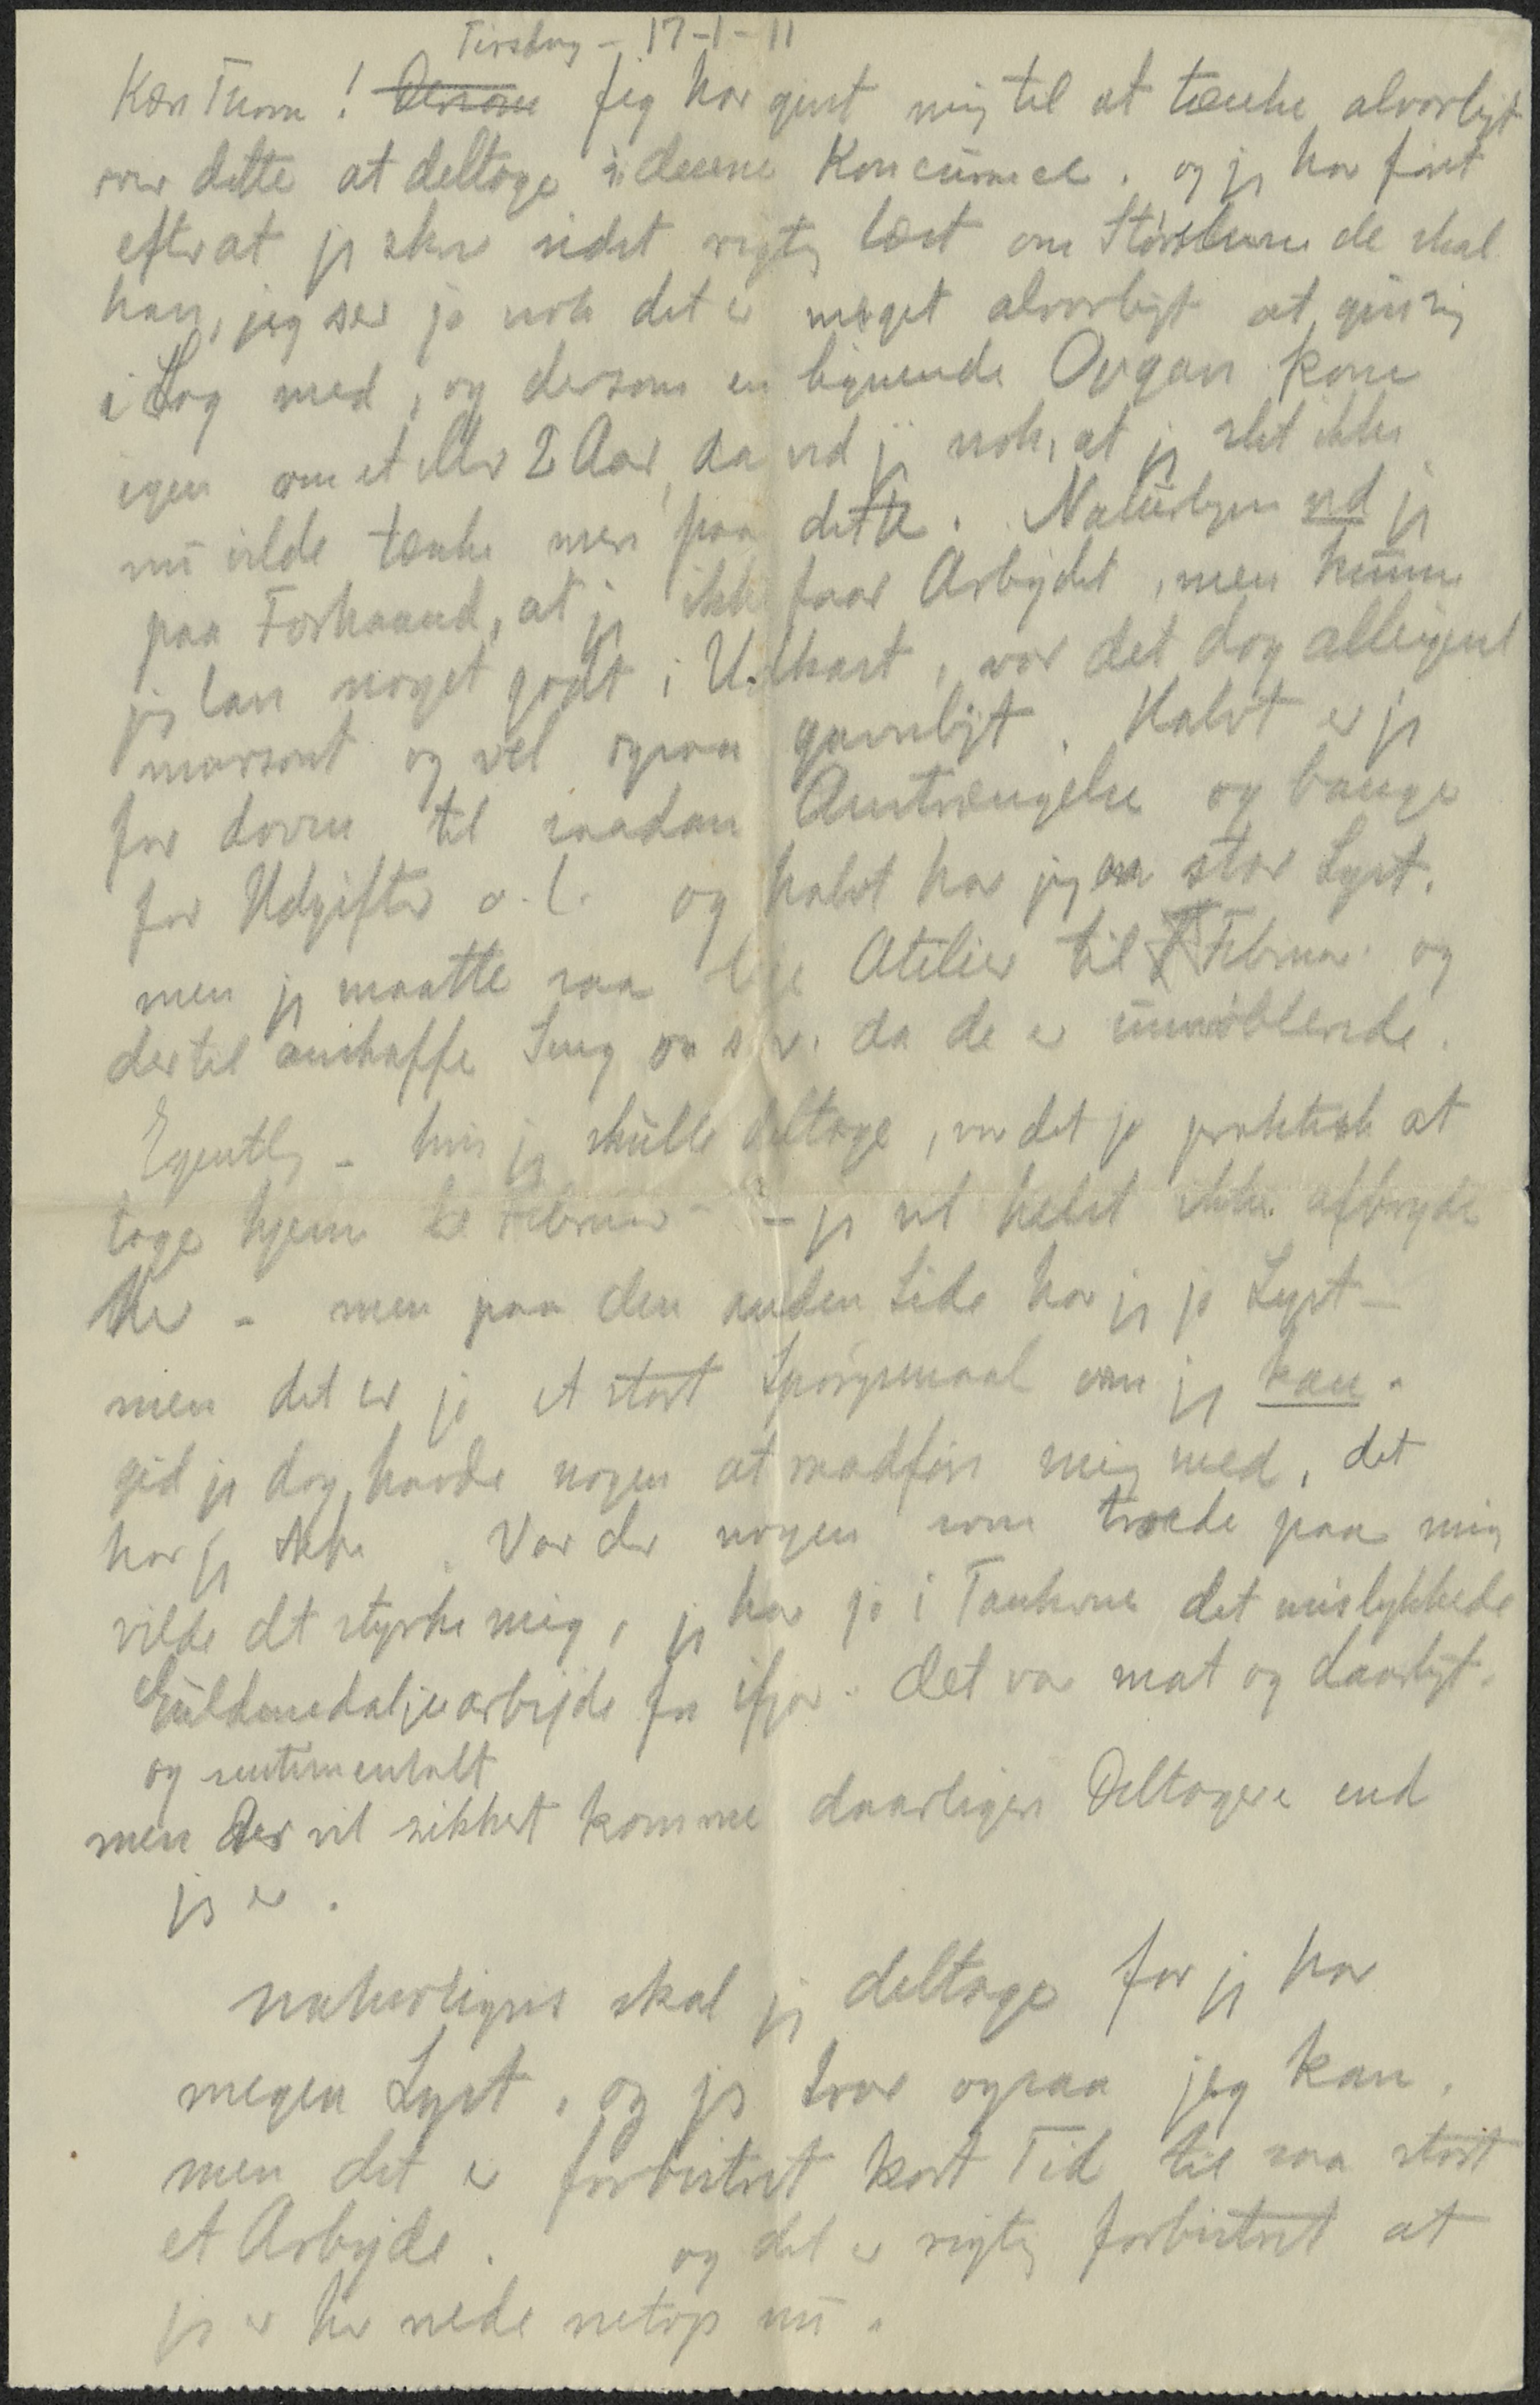 Tirsdag - 17-1-11
Kære Thom! Dersom Jeg har givet mig til at tænke alvorligt
over dette at deltage i denne Koncurrence. og jeg har først
efter at jeg skrev sidst rigtig læst om Størrelserne de skal
have, jeg ser jo nok det er meget alvorligt at give sig
i Lag med, og dersom en lignende Opgave kom
igen om et eller 2 Aar, da ved jeg nok, at jeg slet ikke
nu vilde tænke mere paa dette. Naturligvis ved jeg
paa Forhaand, at jeg ikke faar Arbejdet, men kunne
jeg lave noget godt i Udkast, var det dog alligevel
morsomt og vel ogsaa gavnligt. Halvt er jeg
for doven til saadan Anstrængelse og bange
for Udgifter o.l. og halvt har jeg stor Lyst.
men jeg maatte saa leje Atelier til Februar og
dertil anskaffe Seng o s v. da de er umøblerede.
Egentlig - hvis jeg skulde deltage, var det jo praktisk at
tage hjem til Februar - - jeg vil helst ikke afbryde
her - men paa den anden Side har jeg jo Lyst -
men det er jo et stort Spørgsmaal om jeg kan.
gid jeg dog havde nogen at raadføre mig med, det
har jeg ikke. Var der nogen som troede paa mig
vilde det styrke mig, jeg har jo i Tankerne det mislykkede
Guldmedaljearbejde fra ifjor. det var mat og daarligt.
og sentimentalt
men der vil sikkert komme daarligere Deltagere end
jeg er.
naturligvis skal jeg deltage for jeg har
megen Lyst, og jeg tror ogsaa jeg kan,
men det er forbistret kort Tid til saa stort
et Arbejde. og det er rigtig forbistret at
jeg er her nede netop nu.